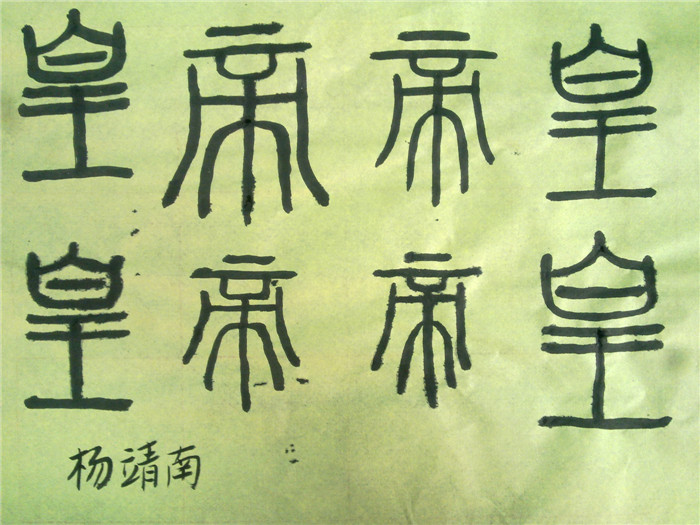 皇帝帝皇
皇帝帝皇
杨靖南